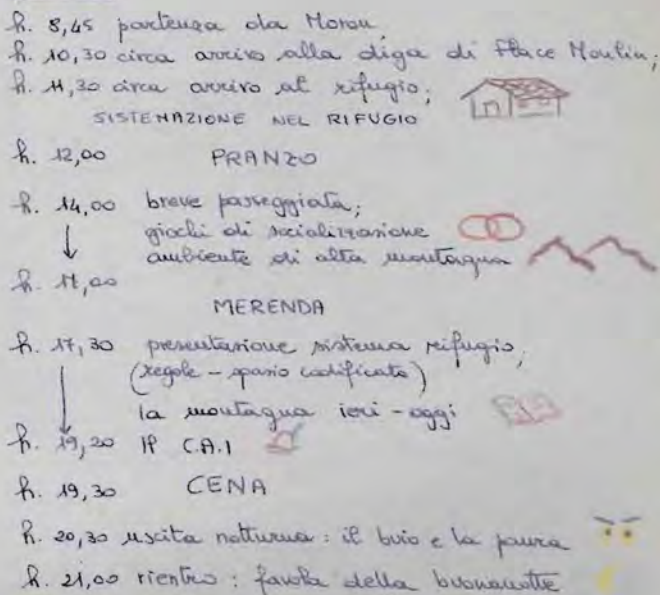 h. 8,45 partenza da Moron,
h. 10,30 circa arrivo alla diga di Place Moulin;
h. 11,30 circa arrivo al rifugio;
SISTEMAZIONE NEL RIFUGIO
h. 12,00 PRANZO
h. 14,00 breve passeggiata;
giochi di socializzazione
ambiente di alta montagna
h. 17,00
MERENDA
h. 17,30 presentazione sistema rifugio,
(regole - spazio codificato)
la montagna ieri - oggi
h. 19,20 Il C.A.I
h. 19,30 CENA
h. 20,30 uscita notturna: il buio e la paura
h. 21,00 rientro: favola della buonanotte